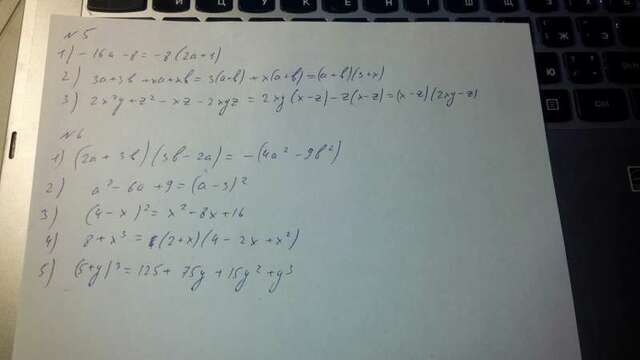 №5
1) -16a -8 = -8(2a+1)
2) 3a+3b +xa+xb = 3(a+b)+x(a+b)=(a+b)(3+x)
3) 2x²y+z² - xz - 2xyz = 2xy(x-z)-z(x-z)=(x-z)(2xy-z)
№6
1) (2a+3b)(3b-2a) = -(4a²-9b²)
2) a²-6a+9=(a-3)²
3) (4-x)²=x²-8x+16
4) 8+x³=(2+x)(4-2x+x²)
5) (5+y)³=125+75y+15y²+y³